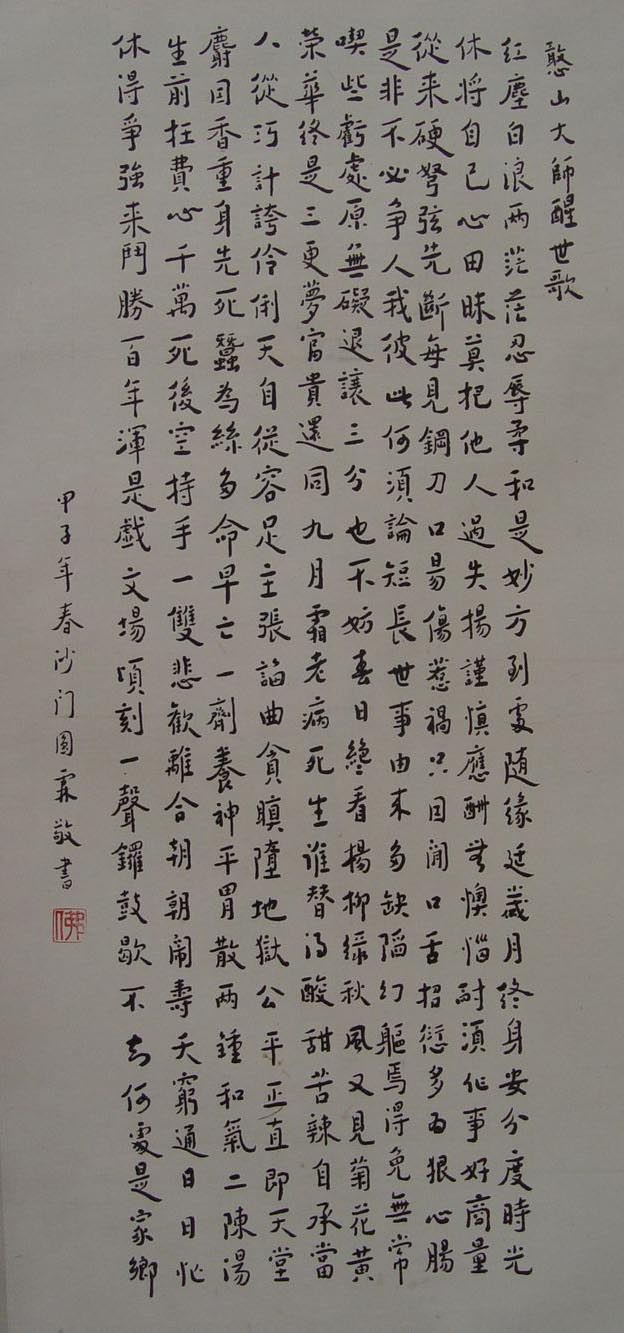 憨山大師醒世歌
红塵白浪兩茫茫忍辱柔和是妙方到處随缘延歲月终身安分度時光
休将自己心田昧莫把他人過失揚謹慎應酬無懊惱耐須作事好商量
從来硬弩弦先斷每見鋼刀口易傷惹禍只因閒口舌招愆多為狠心腸
是非不必争人我彼此何須論短長世事由来多缺陷幻軀焉得免無常
喫些虧處原無礙退讓三分也不妨春日纔看楊柳緑秋風又見菊花黄
榮華终是三更夢富貴還同九月霜老病死生誰替得酸甜苦辣自承當
人從巧計誇伶俐天自從容足主張諂曲貪瞋墮地獄公平正直即天堂
麝因香重身先死蠶為絲多命早亡一劑養神平胃散兩鍾和氣二陳湯
生前枉費心千萬死後空持手一雙悲歡離合朝朝閙壽夭窮通日日忙
休得爭強来鬥勝百年渾是戲文場頃刻一聲鑼鼓歇不知何處是家鄉
甲子年春沙门圆霖敬書